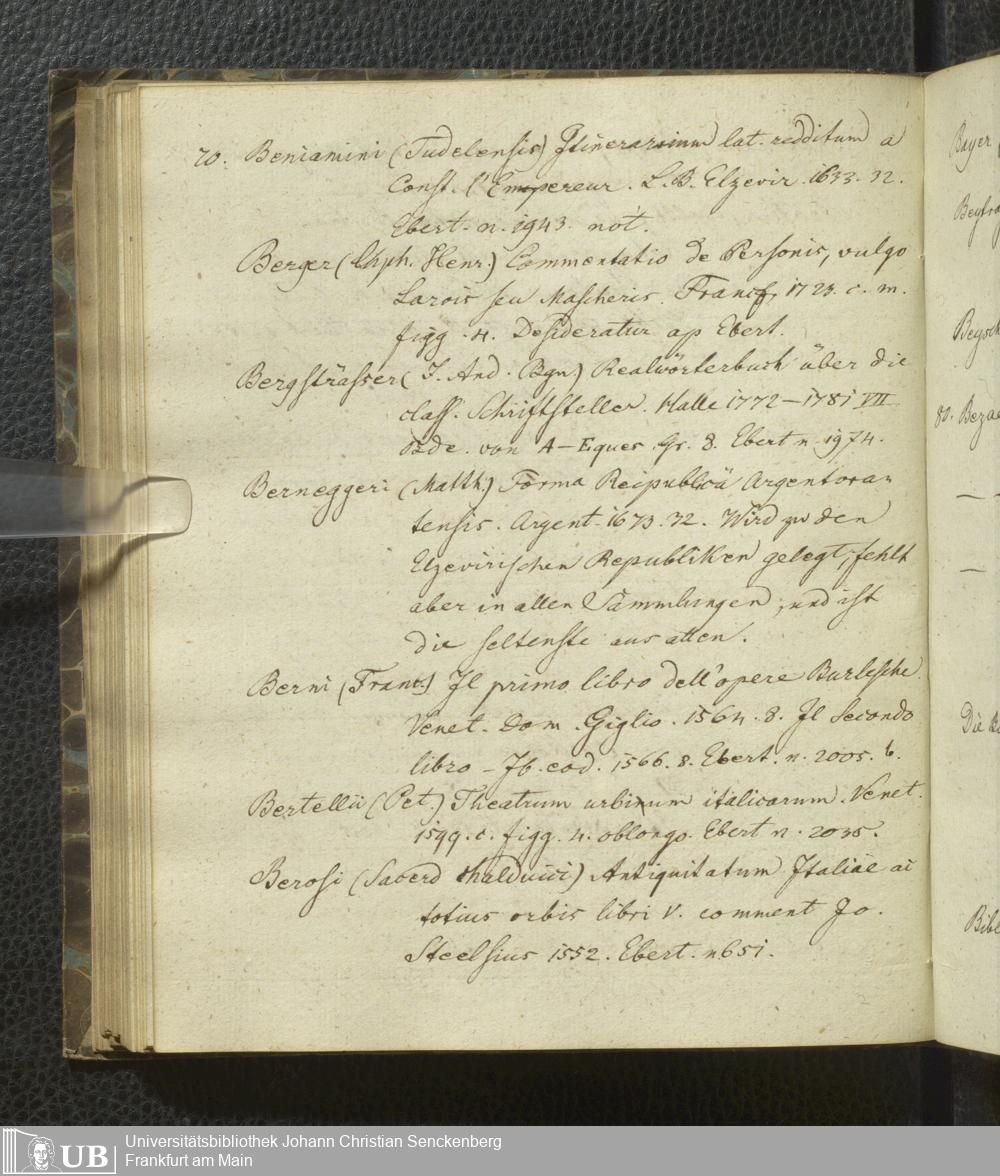 70. Beniamini (Tudelensis) Itinerarium lat. redditum a
Const. l'Empereur. L.B. Elzevir. 1633. 32.
Ebert. n. 1943. not.
Berger (Chph. Henr.) Commentatio de Personis, vulgo
Larvis seu Mascheris. Francf. 1723. c. m.
figg. 4. Desideratur ap Ebert.
Bergsträsser (J. And. Bgn) Realwörterbuch über die
class. Schriftsteller. Halle 1772–1781 VII
Bde. von A–Eques. Gr. 8. Ebert n. 1974.
Berneggeri (Matth.) Forma Reipublicä Argentora-
tensis. Argent. 1673. 32. Wird zu den
Elzevirischen Republiken gelegt, fehlt
aber in allen Sammlungen, und ist
die seltenste aus allen.
Berni (Franc.) Il primo libro dell'opere Burlesche.
Venet. Dom. Giglio. 1564. 8. Il Secondo
libro – Ib. eod. 1566. 8. Ebert. n. 2005. b.
Bertellii (Pet.) Theatrum urbinum italicarum. Venet.
1599. c. figg. 4. oblongo. Ebert n. 2035.
Berosi (Sacerd Chaldaici) Antiquitatum Italiae ac
totius orbis libri V. comment Jo.
Steelsius 1552. Ebert. n 651.
Bayer
80. Bezae
Die
Bibl
UB Universitätsbibliothek Johann Christian Senckenberg
Frankfurt am Main